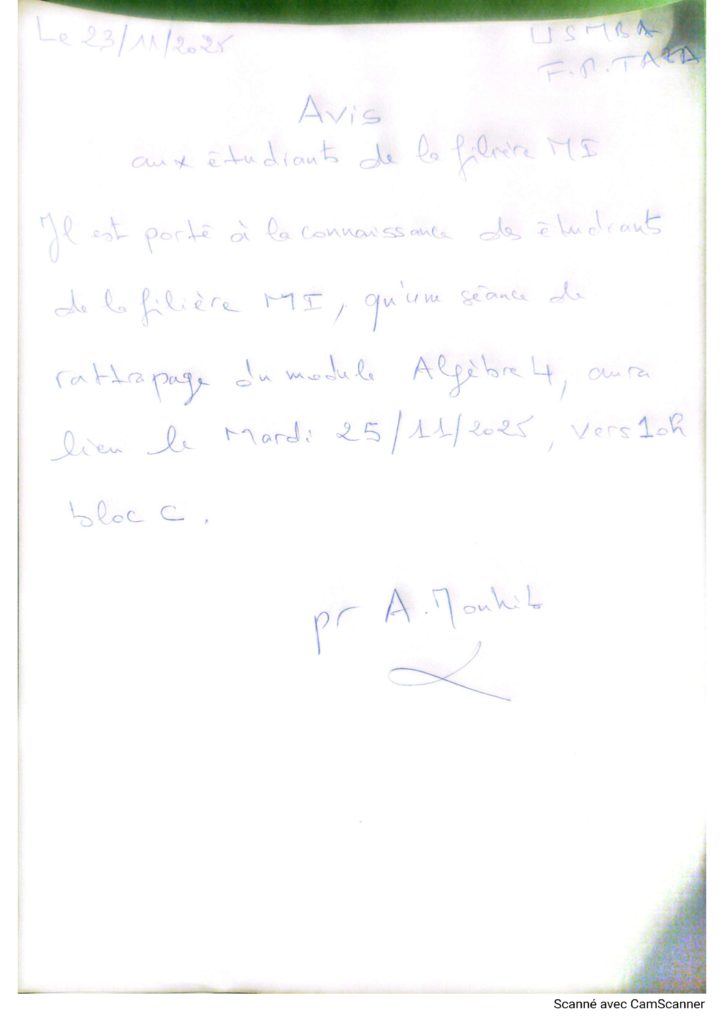 Le 23/11/2025
USMBA
F.P.TAZA
Avis
aux étudiants de la filière MI
Il est porté à la connaissance des étudiants
de la filière MI, qu'une séance de
rattrapage du module Algèbre 4, aura
lieu le Mardi 25/11/2025, vers 10h
bloc C.
pr A. Mouhib
Scanné avec CamScanner